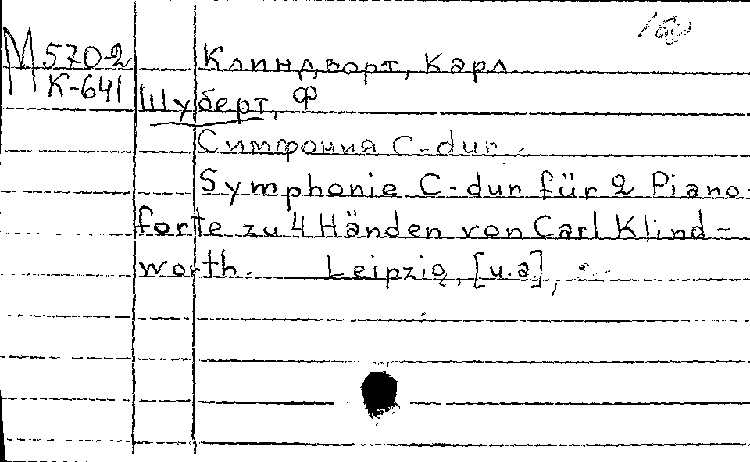 М 570-2 Клиндворт, Карл
К-641
Шуберт, Ф
Симфония C-dur.
Symphonie C-dur für 2 Piano-
forte zu 4 Händen von Carl Klind-
worth. Leipzig, [u.a],